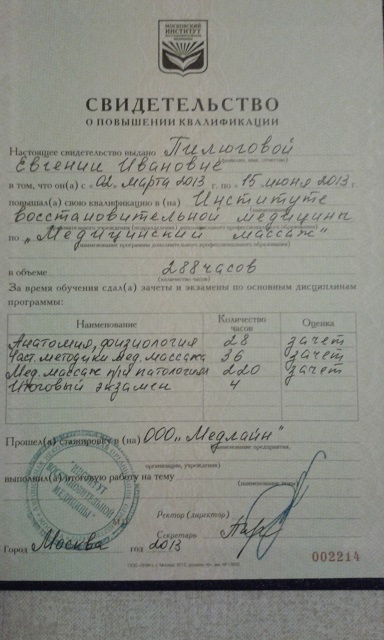 МОСКОВСКИЙ
ИНСТИТУТ
СВИДЕТЕЛЬСТВО
О ПОВЫШЕНИИ КВАЛИФИКАЦИИ
Настоящее свидетельство выдано Пилюговой
Евгении Ивановне
(фамилия, имя, отчество)
в том, что он(а) с «02» марта 2013 г. по «15» июня 2013 г.
повышал(а) свою квалификацию в (на) Институте
восстановительной медицины
по „Медицинский массаж“
(наименование программы дополнительного профессионального образования)
в объеме 288 часов
(количество часов)
За время обучения сдал(а) зачеты и экзамены по основным дисциплинам
программы:
Наименование Количество часов Оценка
Анатомия, физиология 28 зачет
Част. методики мед. массажа 36 зачет
Мед. массаж при патологиях 220 зачет
Итоговый экзамен 4
Прошел(а) стажировку в (на) ООО „Медлайн“
(наименование предприятия,
организации, учреждения)
выполнил(а) итоговую работу на тему
(наименование темы)
ИНСТИТУТ
ВОССТАНОВИТЕЛЬНОЙ
МЕДИЦИНЫ
М.П.
Ректор (директор)
Секретарь
Город Москва год 2013
002214